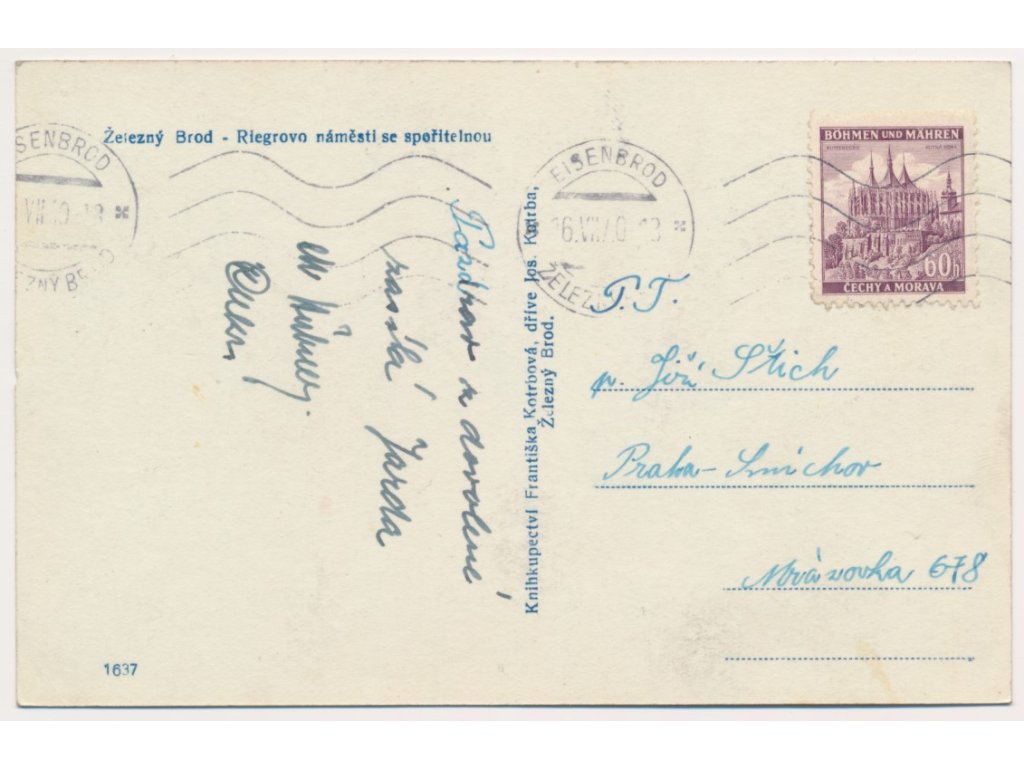 Železný Brod - Riegrovo náměstí se spořitelnou
EISENBROD
VII.40-18
ŽELEZNÝ BROD
EISENBROD
16.VII.40-18
ŽELEZN
BÖHMEN UND MÄHREN
KUTTENBERG KUTNÁ HORA
60h
ČECHY A MORAVA
Pozdrav z dovolené
zasílá Jarda
Knihkupectví Františka Kotrbová, dříve Jos. Kotrba,
Železný Brod.
P.T.
p. Jiří Štich
Praha-Smíchov
Mrázovka 678
1637